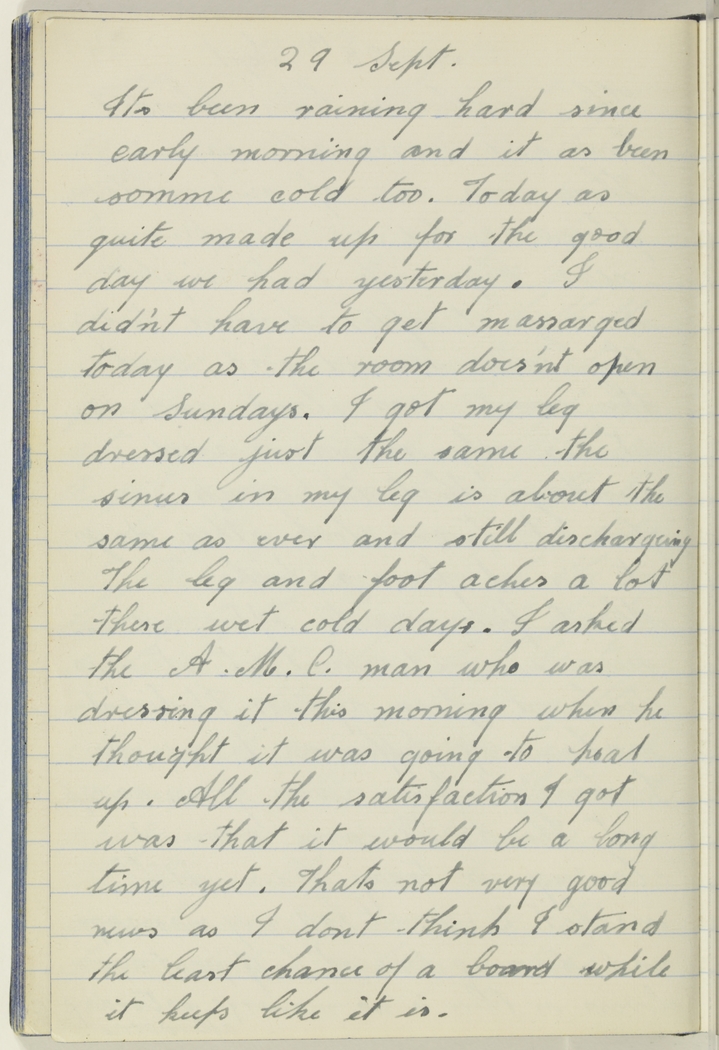 29 Sept.
Its been raining hard since
early morning and it as been
somme cold too. Today as
quite made up for the good
day we had yesterday. I
didn't have to get massarged
today as the room does'nt open
on Sundays. I got my leg
dressed just the same the
sinus in my leg is about the
same as ever and still dischargeing
The leg and foot aches a lot
these wet cold days. I asked
the A.M.C. man who was
dressing it this morning when he
thought it was going to heal
up. All the satisfaction I got
was that it would be a long
time yet. Thats not very good
news as I dont think I stand
the least chance of a board while
it keeps like it is.